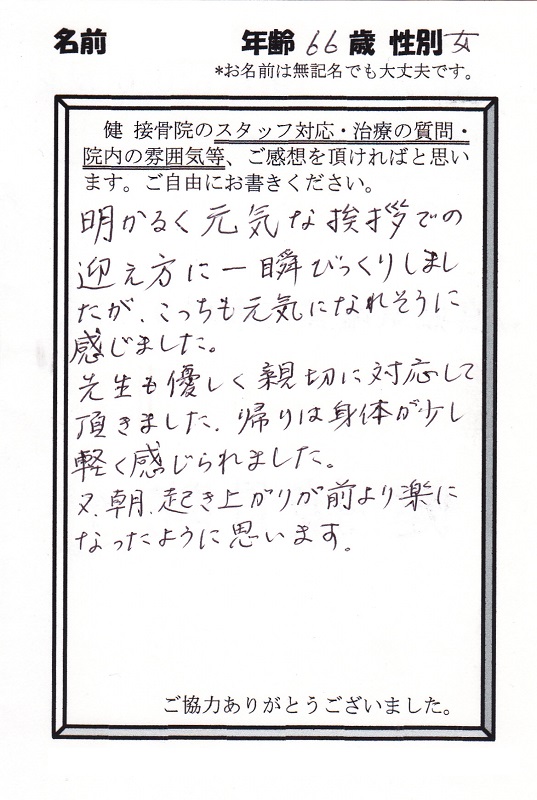 名前 年齢 66 歳 性別 女
*お名前は無記名でも大丈夫です。
健 接骨院のスタッフ対応・治療の質問・
院内の雰囲気等、ご感想を頂ければと思い
ます。ご自由にお書きください。
明かるく元気な挨拶での
迎え方に一瞬びっくりしまし
たが、こっちも元気になれそうに
感じました。
先生も優しく親切に対応して
頂きました、帰りは身体が少し
軽く感じられました。
又、朝、起き上がりが前より楽に
なったように思います。
ご協力ありがとうございました。